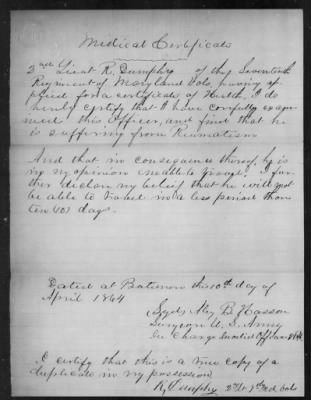 Medical Certificate
2nd Lieut R. Dumphry of the Seventh
Regiment of Maryland Vols, having ap
plied for a certificate of Health, I do
hereby certify that I have carfully exam
ined this Officer, and find that he
is suffering from Reumatism
And that in consequence thereof, he is
in my opinion unable to travel. I fur
ther declare my belief that he will not
be able to travel in a less period than
ten days
Dated at Baltimore this 10th day of
April 1864
Sygd, Aley B. Hasson
Surgeon U. S. Army
In Charge
I certify that this is a true copy of a
duplicate in my possession
R Dumphry 2nd Lt 7th Md Vols